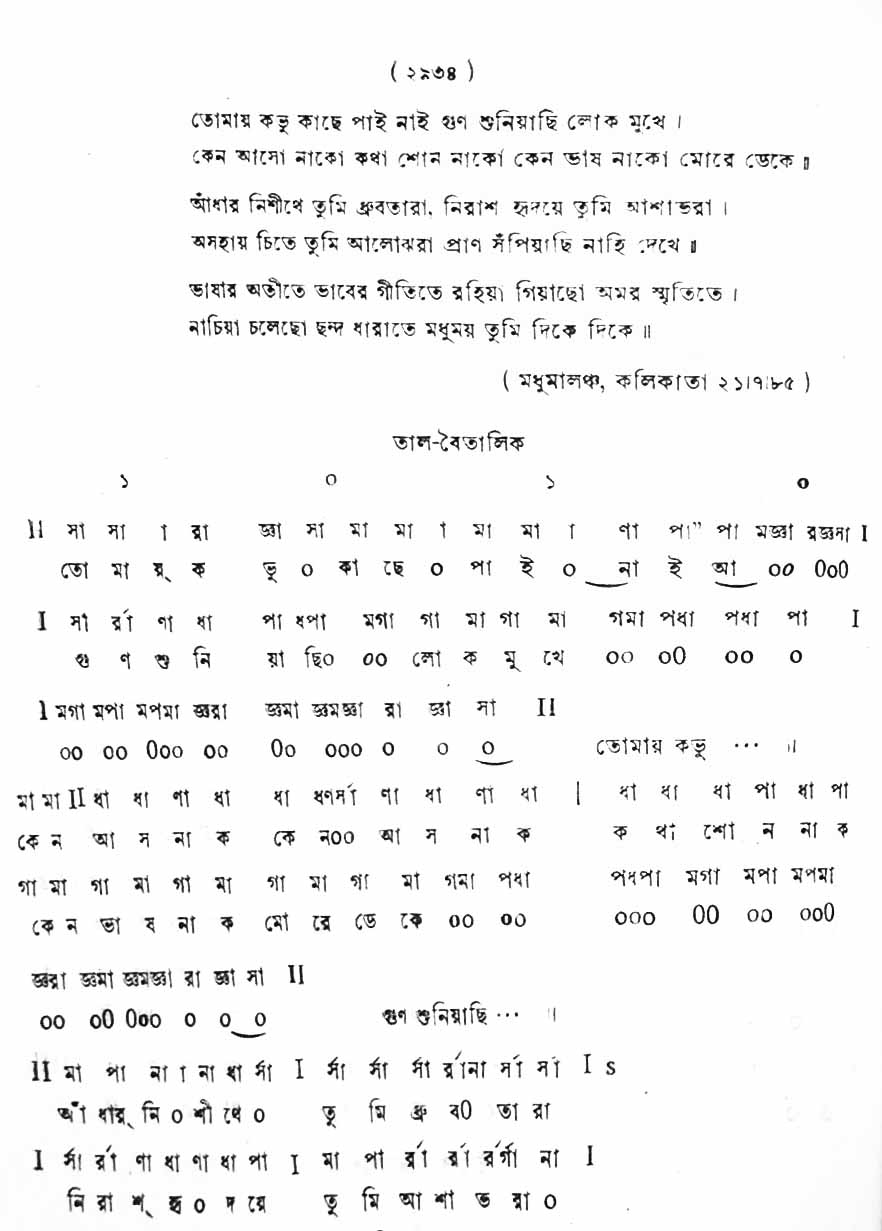 ( ২৯৩৪ )
তোমায় কভু কাছে পাই নাই গুণ শুনিয়াছি লোক মুখে ।
কেন আসো নাকো কথা শোন নাকো কেন ভাষ নাকো মোরে ডেকে ॥
আঁধার নিশীথে তুমি ধ্রুবতারা, নিরাশ হৃদয়ে তুমি আশাভরা ।
অসহায় চিতে তুমি আলোঝরা প্রাণ সঁপিয়াছি নাহি দেখে ॥
ভাষার অতীতে ভাবের গীতিতে রহিয়া গিয়াছো অমর স্মৃতিতে ।
নাচিয়া চলেছো ছন্দ ধারাতে মধুময় তুমি দিকে দিকে ॥
( মধুমালঞ্চ, কলিকাতা ২১।৭।৮৫ )
তাল-বৈতালিক
১ ০ ১ ০
II সা সা া রা জ্ঞা সা মা মা া মা মা া ণা পা" পা মজ্ঞা রজ্ঞসা I
তো মা য়্ ক ভু ০ কা ছে ০ পা ই ০ না ই আ ০০ ০০০
I সা র্রা ণা ধা পা ধপা মগা গা মা গা মা গমা পধা পধা পা I
গু ণ শু নি য়া ছি০ ০০ লো ক মু খে ০০ ০০ ০০ ০
I মগা মপা মপমা জ্ঞরা জ্ঞমা জ্ঞমজ্ঞা রা জ্ঞা সা II
০০ ০০ ০০০ ০০ ০০ ০০০ ০ ০ ০ তোমায় কভু ··· ॥
মা মা II ধা ধা ণা ধা ধা ধণর্সা ণা ধা ণা ধা | ধা ধা ধা পা ধা পা
কে ন আ স না ক কে ন০০ আ স না ক ক থা শো ন না ক
গা মা গা মা গা মা গা মা গা মা গমা পধা পধপা মগা মপা মপমা
কে ন ভা ষ না ক মো রে ডে কে ০০ ০০ ০০০ ০০ ০০ ০০০
জ্ঞরা জ্ঞমা জ্ঞমজ্ঞা রা জ্ঞা সা II
০০ ০০ ০০০ ০ ০ ০ গুণ শুনিয়াছি ··· ।
II মা পা না া না ধা র্সা I র্সা র্সা র্সা র্রানা র্সা র্সা I s
আঁ ধার্ নি ০ শী থে ০ তু মি ধ্রু ব০ তা রা
I র্সা র্রা ণা ধা ণা ধা পা I মা পা র্রা র্রা র্রর্গা না I
নি রা শ্ হৃ ০ দ য়ে তু মি আ শা ভ রা ০